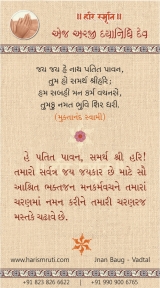 ॥ हरि स्मृति ॥
એજ અરજી દયાનિધિ દેવ
જય જય હે નાથ પતિત પાવન,
તુમ હી સમર્થ શ્રીહરિ;
હમ સબહી મન કર્મ વચનસે,
તુમકુ નમત ભુવિ શિર ધરી.
(મુક્તાનંદ સ્વામી)
હે પતિત પાવન, સમર્થ શ્રી હરિ!
તમારો સર્વત્ર જય જયકાર છે માટે સૌ
આશ્રિત ભક્તજન મનકર્મવચને તમારાં
ચરણમાં નમન કરીને તમારી ચરણરજ
મસ્તકે ચઢાવે છે.
www.harismruti.com Jnan Baug - Vadtal
+91 823 826 6622 | +91 990 900 6765